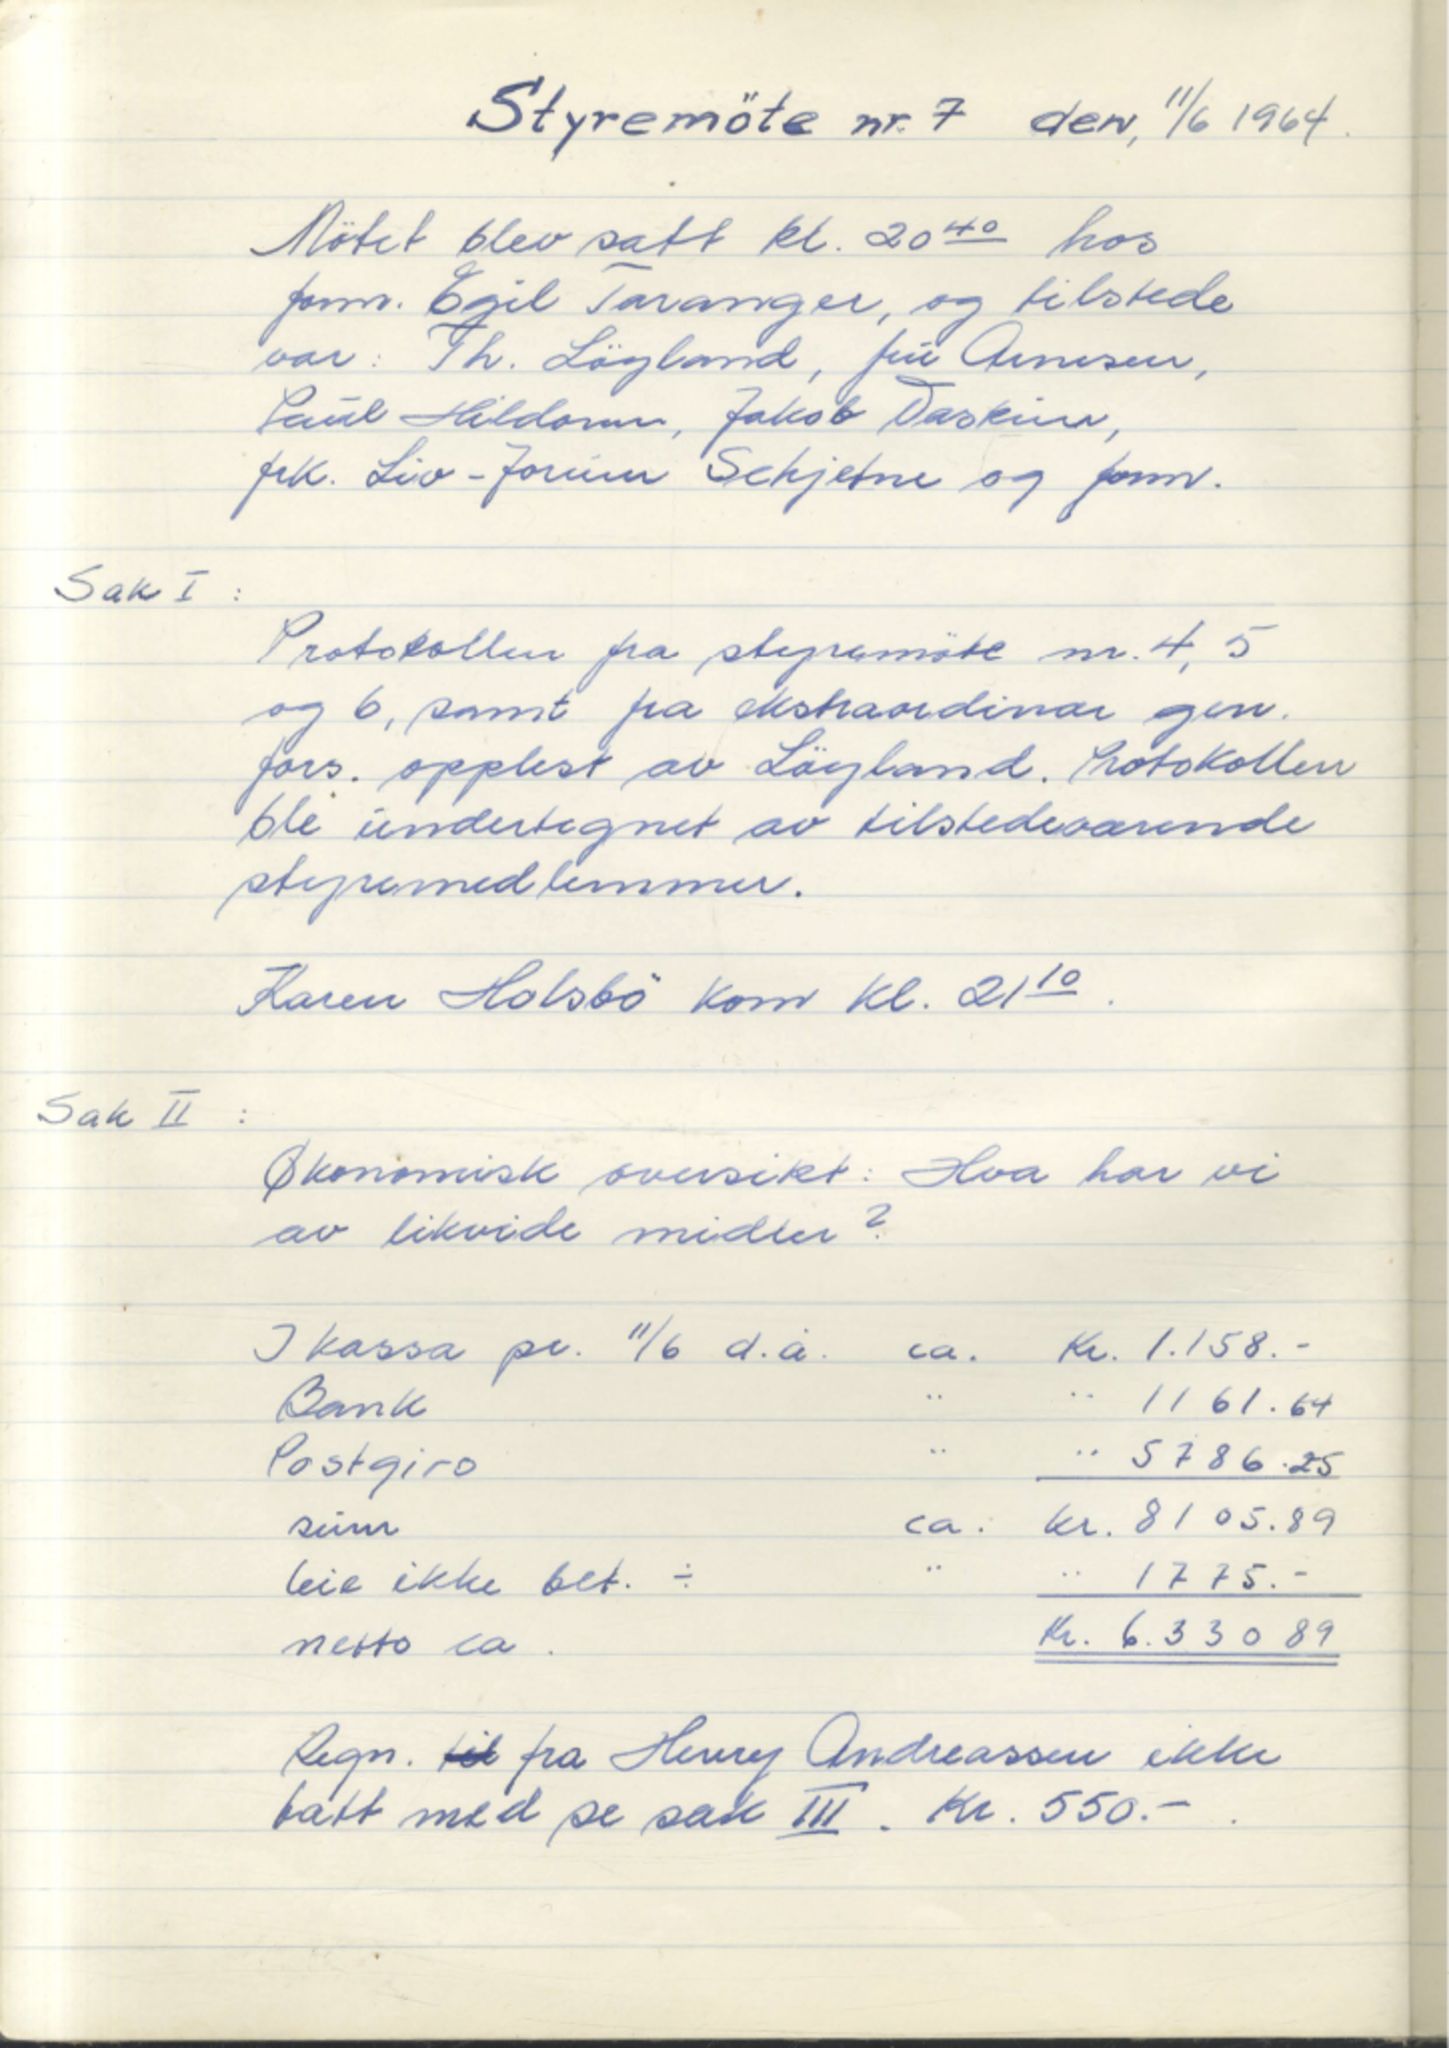 Styremöte nr. 7 den, 11/6 1964.
Mötet blev satt kl. 20 40 hos
form. Egil Taranger, og tilstede
var: Th. Lögland, frü Arnesen,
Paül Hildorm, Jakob Daskin,
frk. Liv-Jorün Schjetne og form.
Sak I :
Protokollen fra styremöte nr. 4, 5
og 6, samt fra ekstraordinær gen.
fors. opplest av Lögland. Protokollen
ble ündertegnet av tilstedeværende
styremedlemmer.
Karen Holsbö kom kl. 21 10.
Sak II :
Økonomisk oversikt: Hva har vi
av likvide midler?
I kassa pr. 11/6 d.å. ca. Kr. 1.158.-
Bank " " 1161.64
Postgiro " " 5786.25
süm ca. kr. 8105.89
leie ikke bet. ÷ " " 1775.-
netto ca. Kr. 6.330 89
Regn. til fra Henry Andreassen ikke
tatt med se sak III. Kr. 550.-